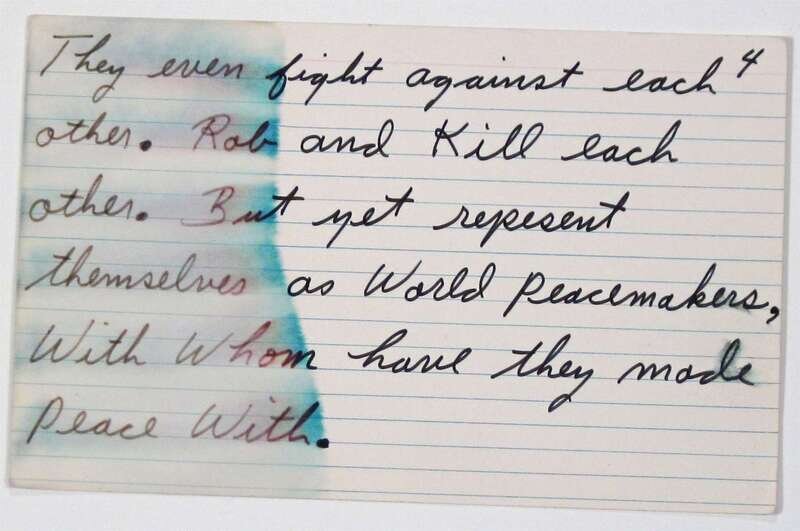 They even fight against each 4
other. Rob and Kill each
other. But yet repesent
themselves as World Peacemakers,
With Whom have they made
Peace With.